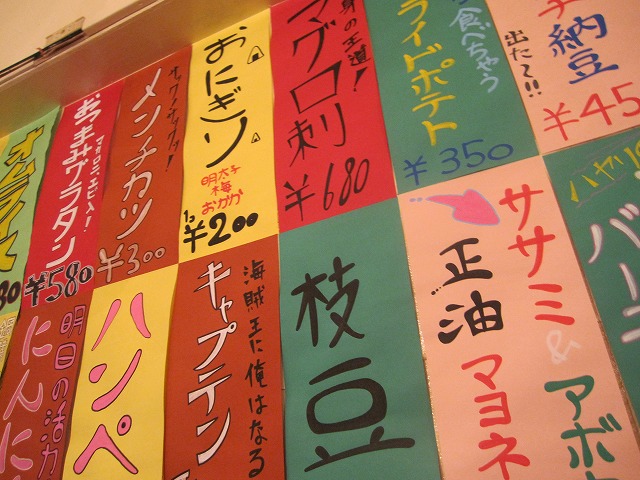 オムライス
80
おつまみグラタン
マカロニ、エビ入!
¥580
メンチカツ
¥300
おにぎり
明太子
梅
おかか
1コ
¥200
マグロ刺
身の王道!
¥680
ライドポテト
食べちゃう
¥350
納豆
出た〜!!
¥45
ハヤリ
バー
明日の活力
にんに
ハンペ
キャプテン
海賊王に俺はなる
枝豆
ササミ
&
アボ
正油
マヨネ